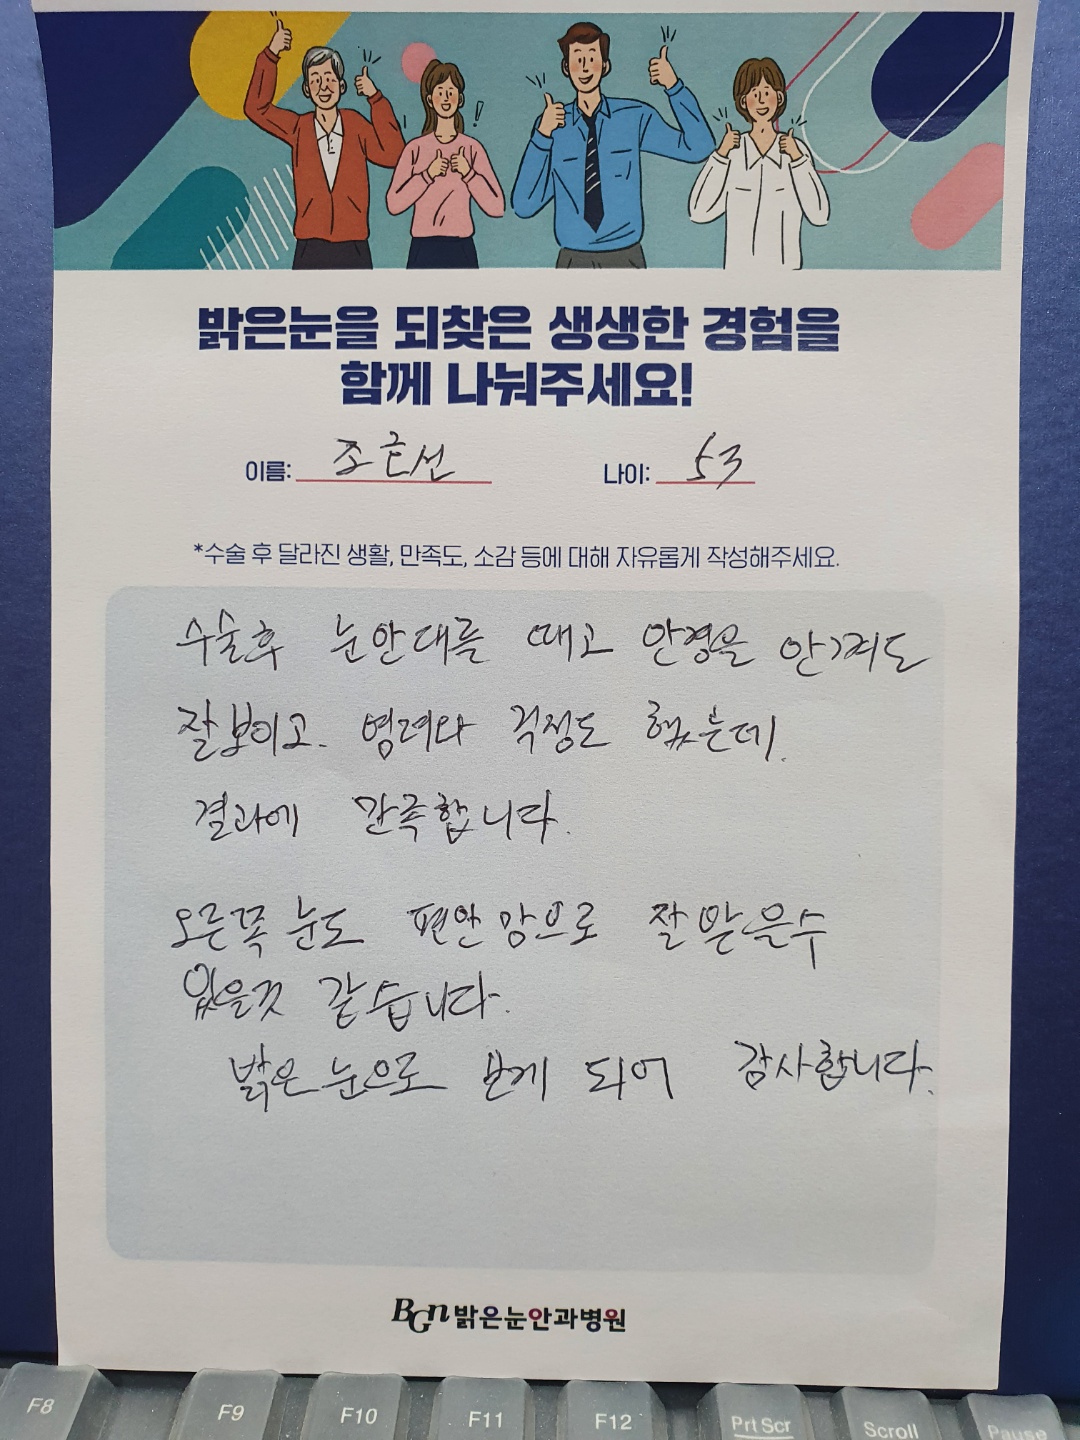 밝은눈을 되찾은 생생한 경험을
함께 나눠주세요!
이름: 조근선 나이: 53
*수술 후 달라진 생활, 만족도, 소감 등에 대해 자유롭게 작성해주세요.
수술후 눈안대를 떼고 안경을 안껴도
잘보이고. 염려와 걱정도 했는데.
결과에 만족합니다.
오른쪽 눈도 편안 맘으로 잘 받을수
있을것 같습니다.
밝은 눈으로 보게 되어 감사합니다.
BGn밝은눈안과병원
F8 F9 F10 F11 F12 Prt Scr Scroll Pause